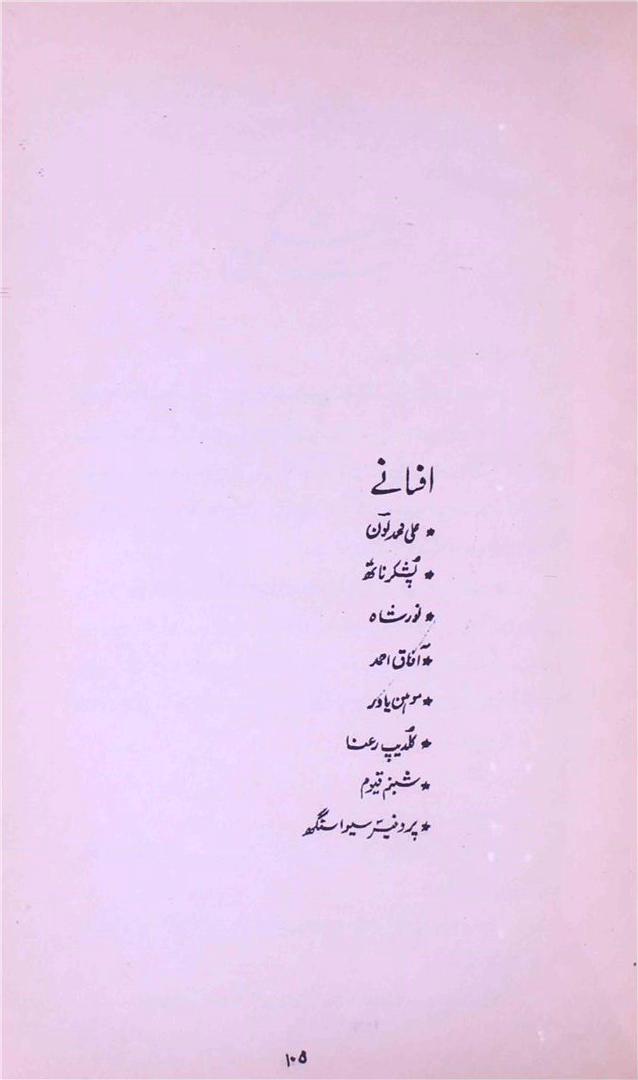 افسانے
* علی محمد لون
* پشکر ناتھ
* نور شاہ
* آفاق احمد
* موہن یاور
* کلدیپ رعنا
* شبنم قیوم
* پروفیسر سیوا سنگھ
۱۰۵